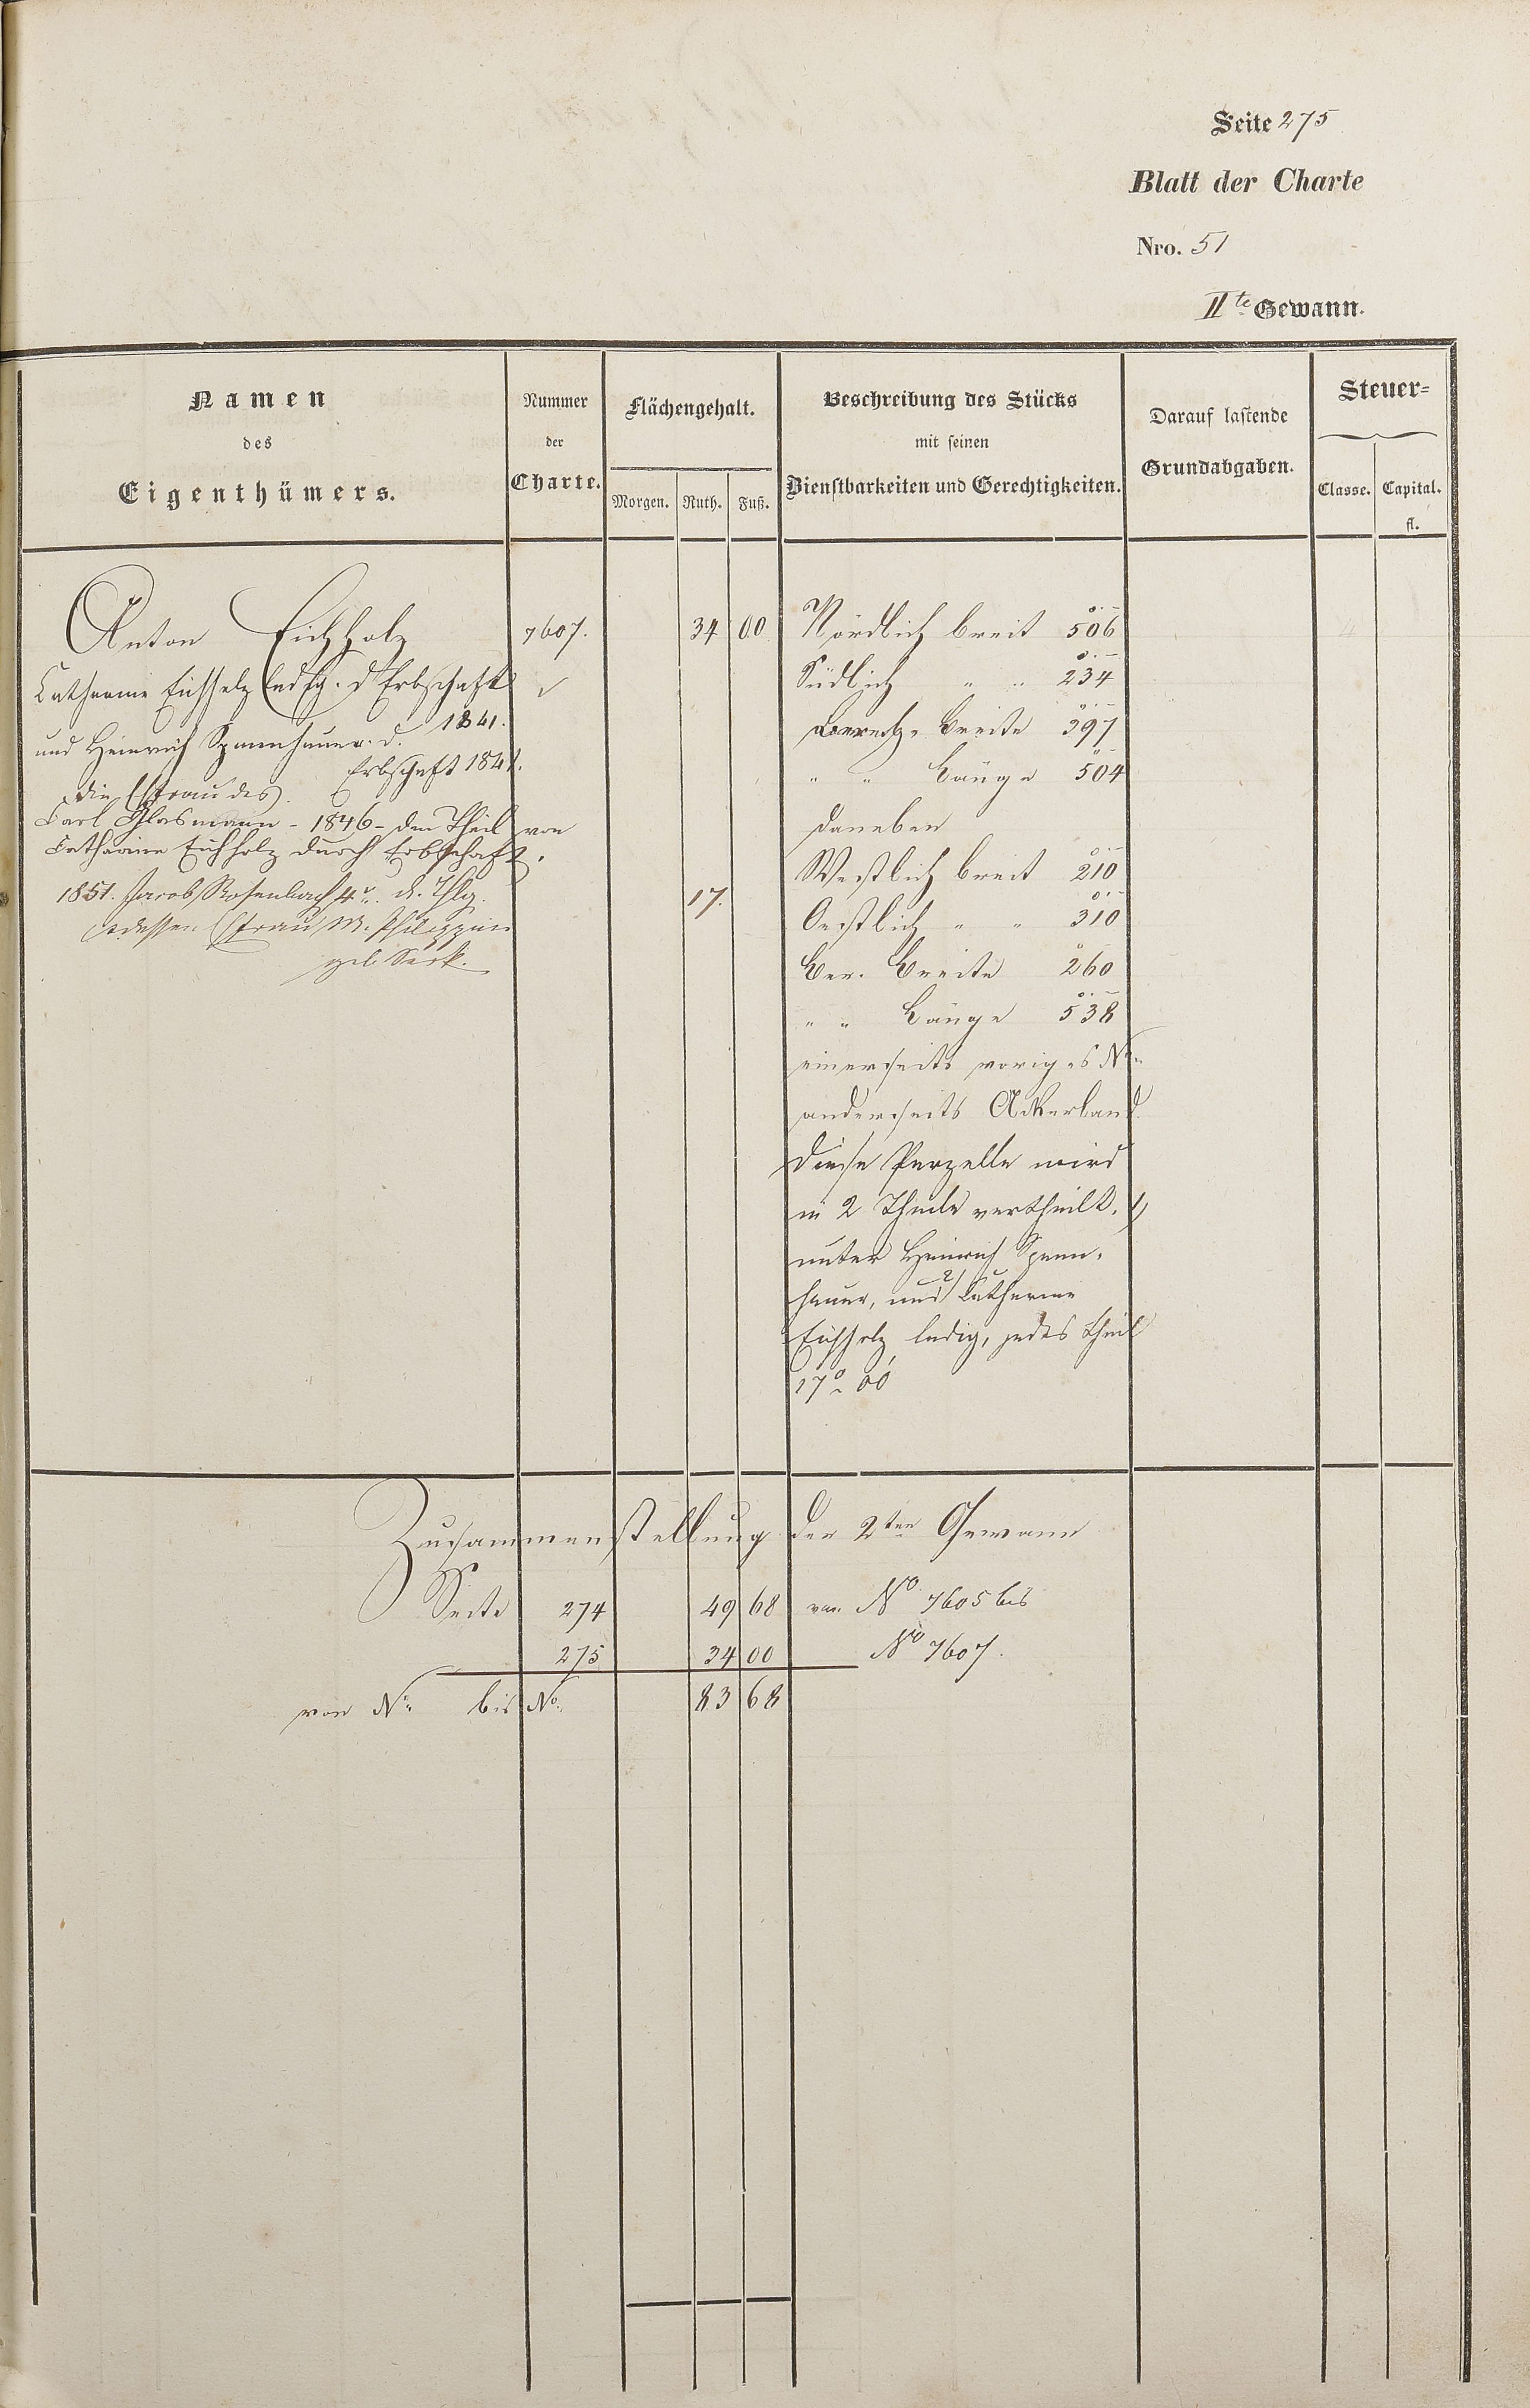 Seite 275
Blatt der Charte
Nro. 51
IIte Gewann.
Namen
des
Eigenthümers.
Nummer
der
Charte.
Flächengehalt.
Morgen. Ruth. Fuß.
Beschreibung des Stücks
mit seinen
Dienstbarkeiten und Gerechtigkeiten.
Darauf lastende
Grundabgaben.
Steuer-
Classe. Capital.
fl.
Anton Eichholz 7607. 34 00 Nördlich breit 506
Catharine Eichholz ledig. d. Erbschaft
1841.
und Heinrich Spannhauer. d.
Erbschaft 1841.
die Ehefrau des
Carl Glasmann - 1846 - den Theil von
Catharine Eichholz durch Erbschaft.
1851. Jacob Rosenbach 4r. d. Thlg. 17.
dessen Ehefrau M. Philippine
geb. Seck.
Südlich " " 234
Berech. Breite 397
" " Länge 504
daneben
Westlich breit 210
Oestlich " " 310
Ber. Breite 260
" " Länge 538
einerseits voriges No.
anderseits Ackerland.
Diese Parzelle wird
in 2 Theile vertheilt. 1)
unter Heinrich Spann-
hauer, und 2) Catharine
Eichholz ledig, jedes Theil
17° 00'
Zusammenstellung der 2ten Gewann
Seite 274 49 68 von No 7605 bis
275 34 00 No 7607.
von No. bis No. 83 68